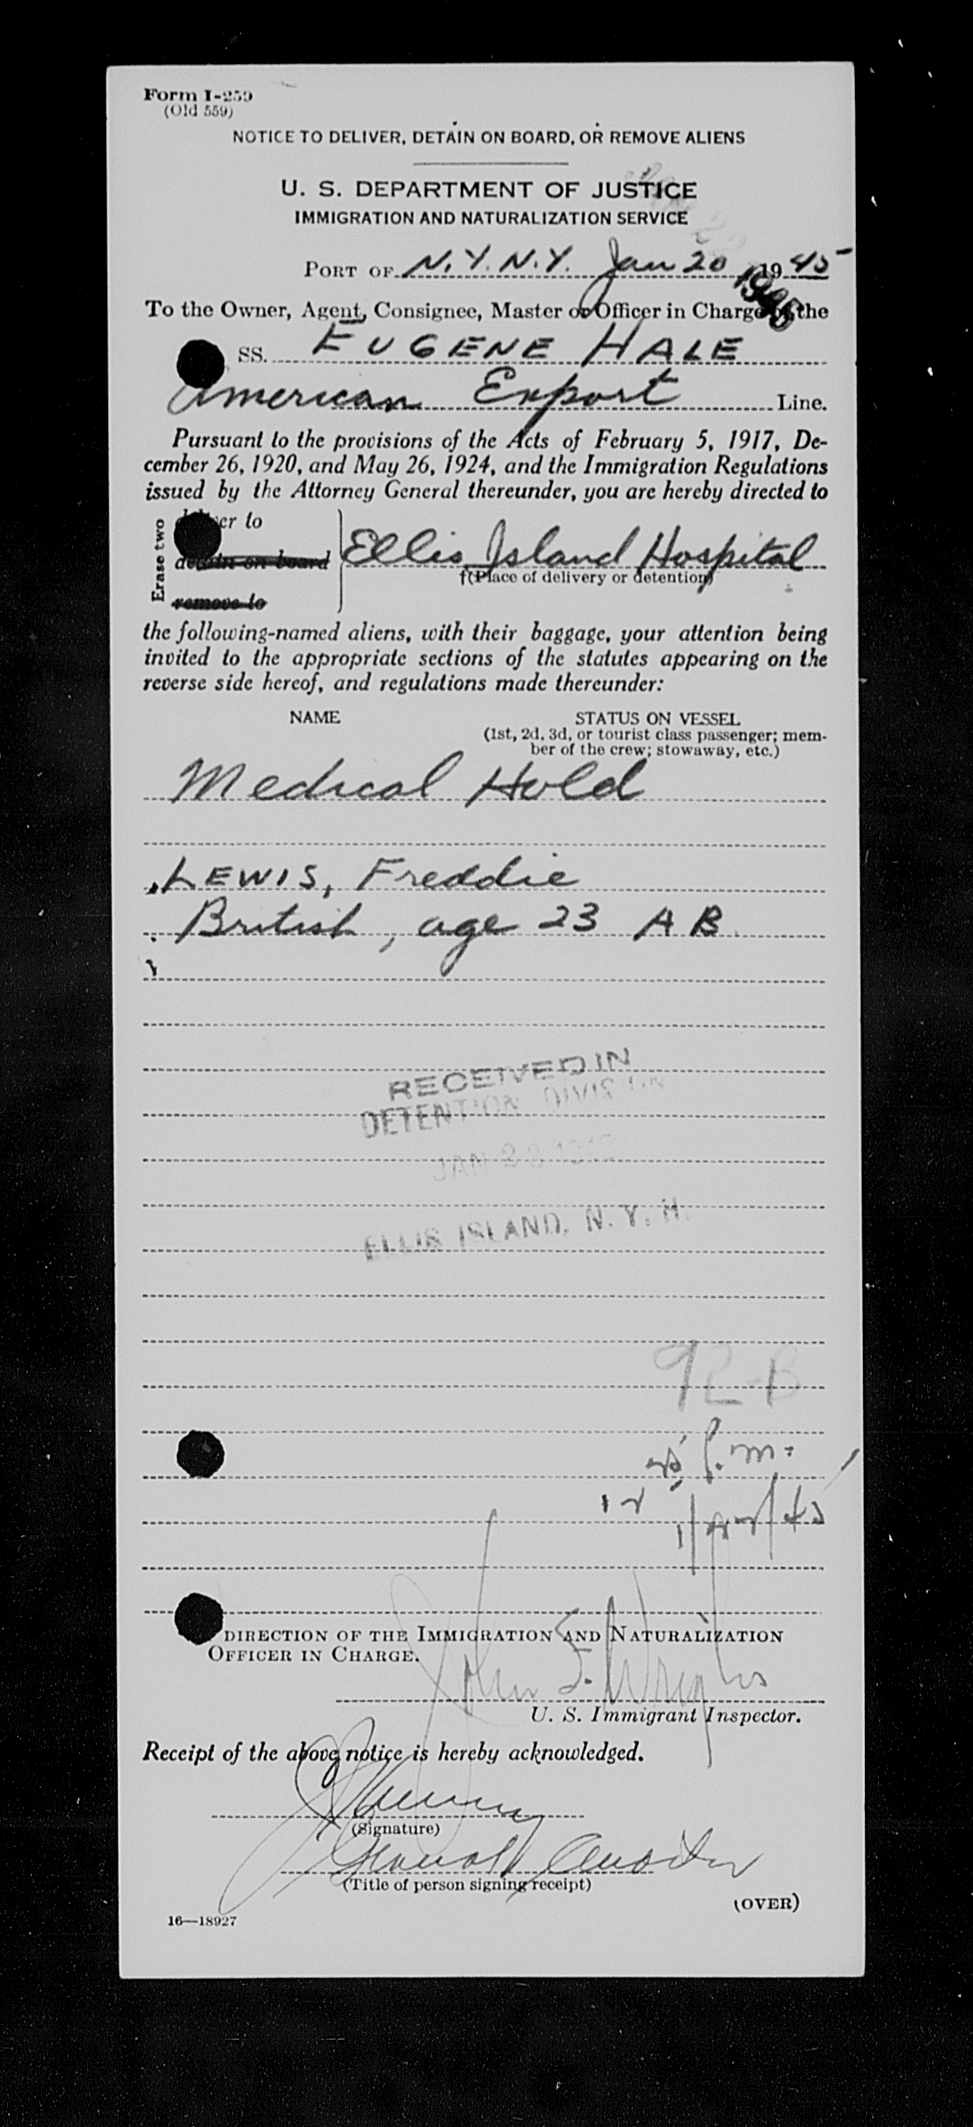 Form I-259
(Old 559)
NOTICE TO DELIVER, DETAIN ON BOARD, OR REMOVE ALIENS
U. S. DEPARTMENT OF JUSTICE
IMMIGRATION AND NATURALIZATION SERVICE
PORT OF N.Y. N.Y. Jan 20 1945
To the Owner, Agent, Consignee, Master or Officer in Charge of the
SS. EUGENE HALE
American Export Line.
Pursuant to the provisions of the Acts of February 5, 1917, De-
cember 26, 1920, and May 26, 1924, and the Immigration Regulations
issued by the Attorney General thereunder, you are hereby directed to
Erase two
deliver to
detain on board
remove to
Ellis Island Hospital
†(Place of delivery or detention)
the following-named aliens, with their baggage, your attention being
invited to the appropriate sections of the statutes appearing on the
reverse side hereof, and regulations made thereunder:
NAME STATUS ON VESSEL
(1st, 2d, 3d, or tourist class passenger; mem-
ber of the crew; stowaway, etc.)
Medical Hold
LEWIS, Freddie
British, age 23 AB
RECEIVED IN
DETENTION DIVISION
JAN
ELLIS ISLAND, N. Y. H.
92-B
P.m.
DIRECTION OF THE IMMIGRATION AND NATURALIZATION
OFFICER IN CHARGE.
John
U. S. Immigrant Inspector.
Receipt of the above notice is hereby acknowledged.
(Signature)
(Title of person signing receipt)
(OVER)
16—18927